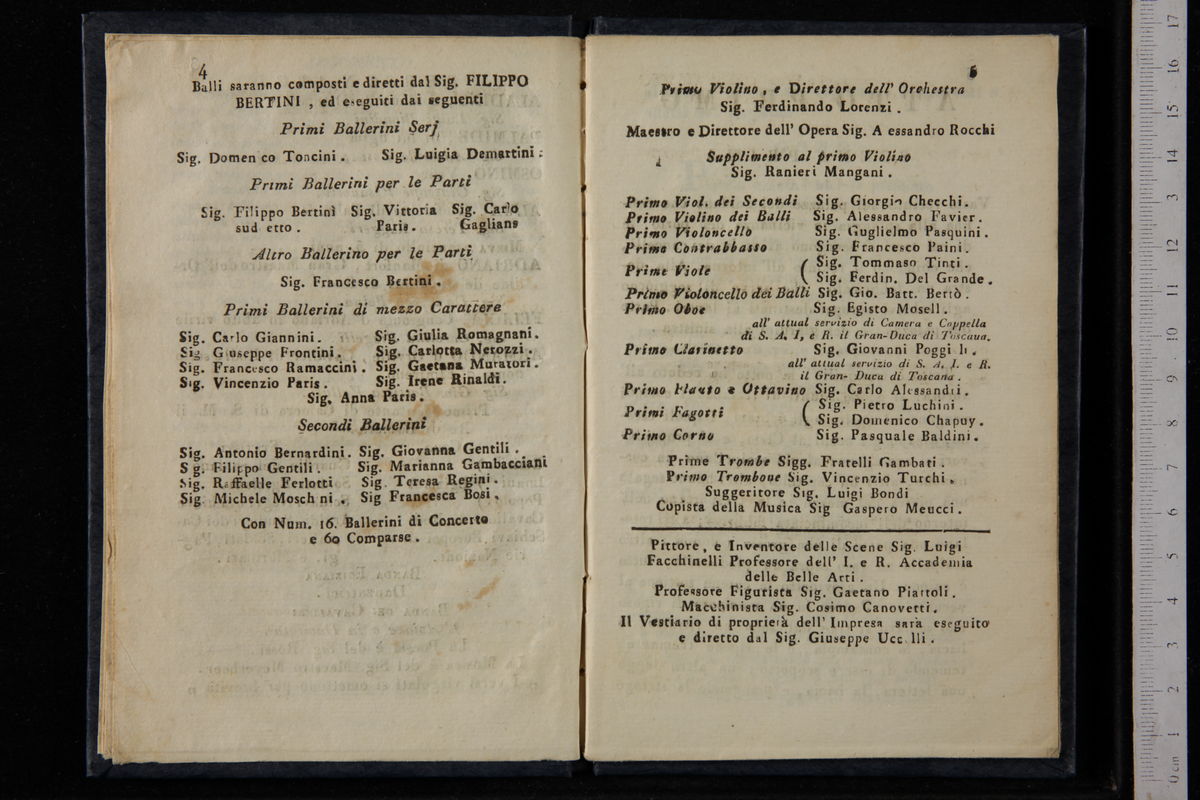 4
Balli saranno composti e diretti dal Sig. FILIPPO
BERTINI , ed eseguiti dai seguenti
Primi Ballerini Serj
Sig. Domen co Toncini . Sig. Luigia Demartini :
Primi Ballerini per le Parti
Sig. Filippo Bertini Sig. Vittoria Sig. Carlo
sud etto . Paris . Gagliano
Altro Ballerino per le Parti
Sig. Francesco Bertini .
Primi Ballerini di mezzo Carattere
Sig. Carlo Giannini . Sig. Giulia Romagnani.
Sig Giuseppe Frontini . Sig. Carlotta Nerozzi .
Sig. Francesco Ramaccini . Sig. Gaetana Muratori.
Sig. Vincenzio Paris . Sig. Irene Rinaldi.
Sig. Anna Paris .
Secondi Ballerini
Sig. Antonio Bernardini. Sig. Giovanna Gentili .
S g. Filippo Gentili . Sig. Marianna Gambacciani
Sig. Raffaelle Ferlotti Sig. Teresa Regini .
Sig. Michele Mosch ni . Sig Francesca Bosi .
Con Num. 16. Ballerini di Concerto
e 60 Comparse .
5
Primo Violino , e Direttore dell' Orchestra
Sig. Ferdinando Lorenzi .
Maestro e Direttore dell' Opera Sig. A essandro Rocchi
Supplimento al primo Violino
Sig. Ranieri Mangani .
Primo Viol. dei Secondi Sig. Giorgio Checchi.
Primo Violino dei Balli Sig. Alessandro Favier.
Primo Violoncello Sig. Guglielmo Pasquini .
Primo Contrabbasso Sig. Francesco Paini .
Prime Viole ( Sig. Tommaso Tinti .
Sig. Ferdin. Del Grande .
Primo Violoncello dei Balli Sig. Gio. Batt. Bertò .
Primo Oboe Sig. Egisto Mosell .
all' attual servizio di Camera e Cappella
di S. A. I, e R. il Gran-Duca di Toscana.
Primo Clarinetto Sig. Giovanni Poggi li .
all' attual servizio di S. A. I. e R.
il Gran- Duca di Toscana .
Primo Flauto e Ottavino Sig. Carlo Alessandri .
Primi Fagotti ( Sig. Pietro Luchini .
Sig. Domenico Chapuy .
Primo Corno Sig. Pasquale Baldini .
Prime Trombe Sigg. Fratelli Gambati .
Primo Trombone Sig. Vincenzio Turchi .
Suggeritore Sig. Luigi Bondi
Copista della Musica Sig Gaspero Meucci .
Pittore , e Inventore delle Scene Sig. Luigi
Facchinelli Professore dell' I. e R. Accademia
delle Belle Arti .
Professore Figurista Sig. Gaetano Piattoli .
Macchinista Sig. Cosimo Canovetti .
Il Vestiario di proprietà dell' Impresa sarà eseguito
e diretto dal Sig. Giuseppe Ucc lli .
0 cm 1 2 3 4 5 6 7 8 9 10 11 12 13 14 15 16 17